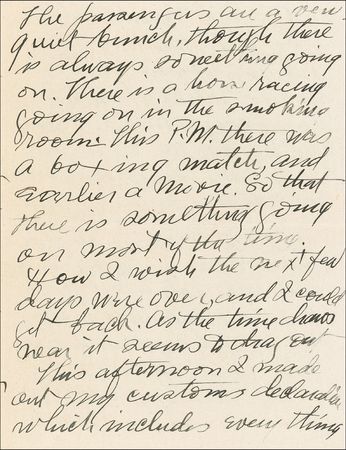 The passengers are a very
quiet bunch, though there
is always something going
on. There is a horse racing
going on in the smoking
room. This P.M. there was
a boxing match, and
earlier a Movie. So that
there is something going
on most of the time.
How I wish the next few
days were over, and I could
get back. As the time draws
near it seems to drag out
This afternoon I made
out my customs declaration
which includes everything